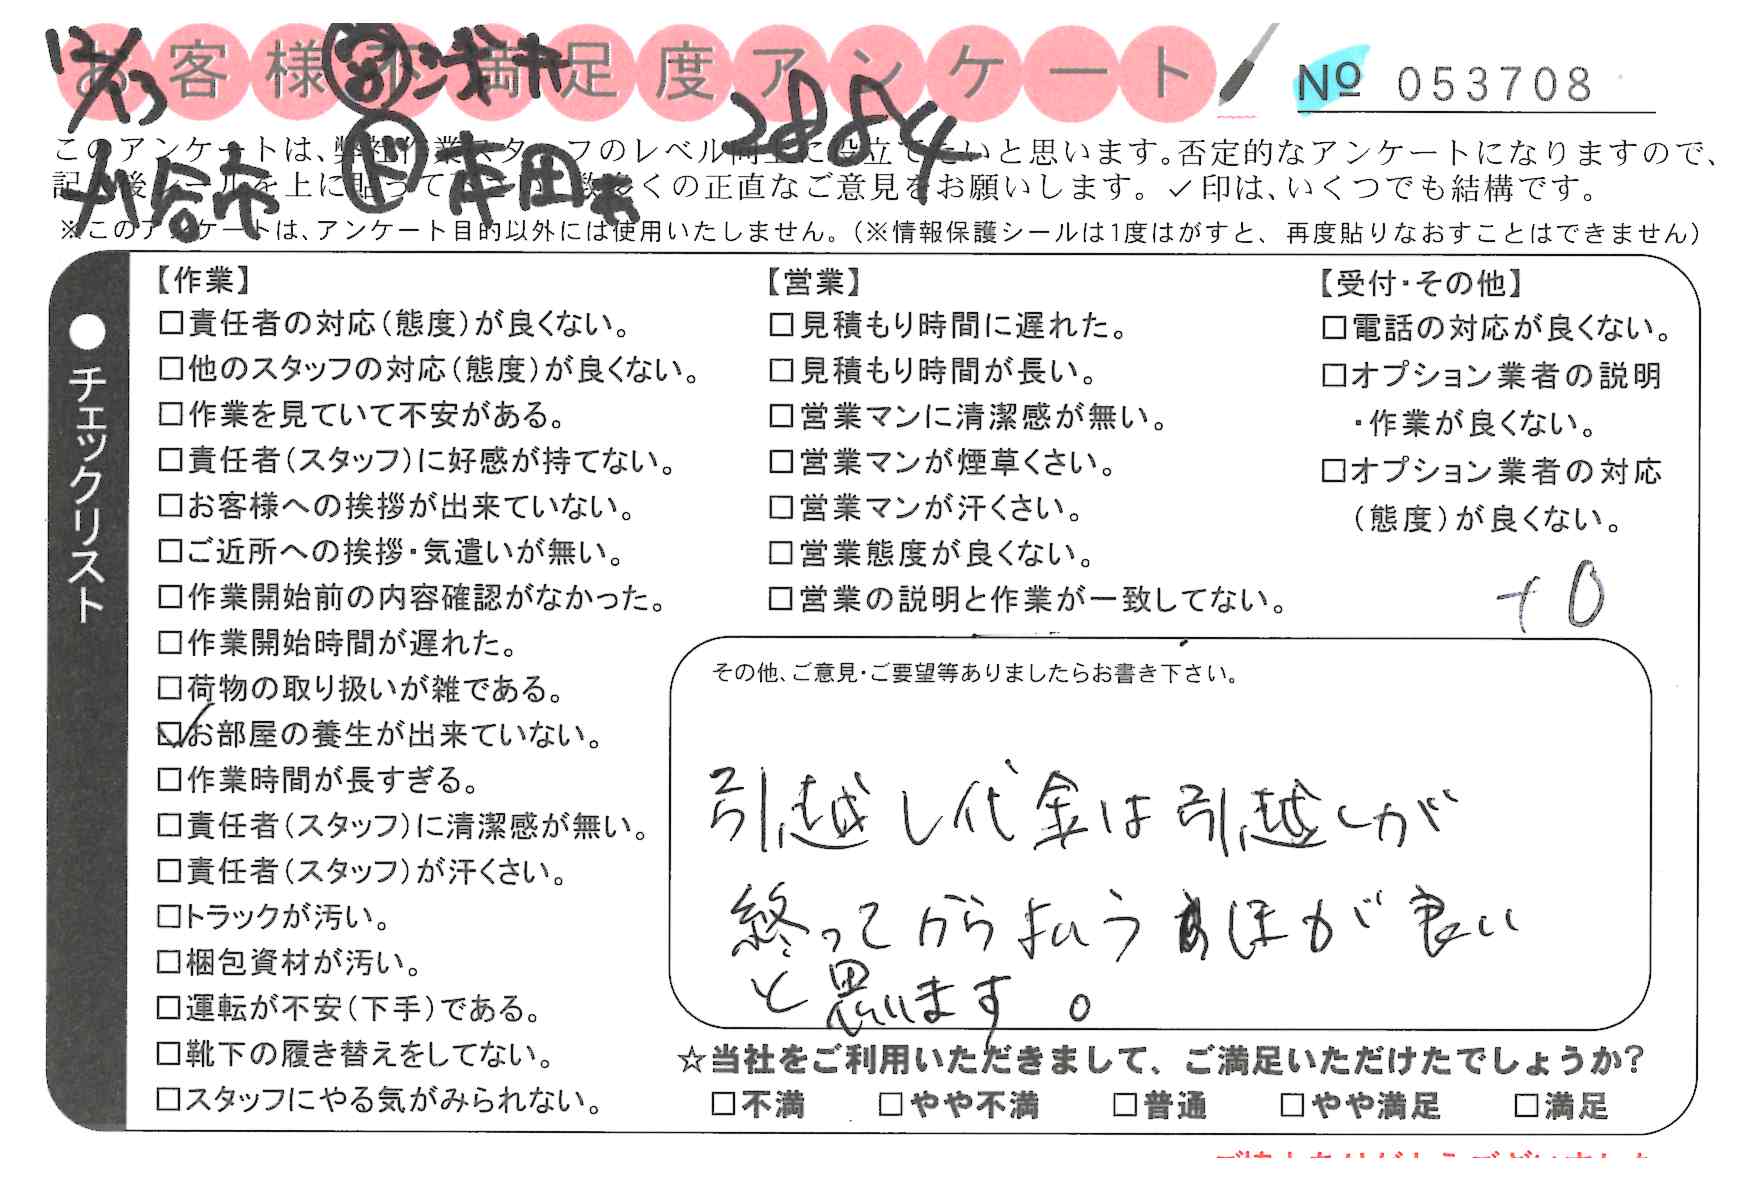 お客様不満足度アンケート
No 053708
12/13
浅井
2884
刈谷市
本田
このアンケートは、弊社作業スタッフのレベル向上に役立てたいと思います。否定的なアンケートになりますので、
記入後シールを上に貼って くの正直なご意見をお願いします。✓印は、いくつでも結構です。
※このアンケートは、アンケート目的以外には使用いたしません。(※情報保護シールは1度はがすと、再度貼りなおすことはできません)
●チェックリスト
【作業】
□責任者の対応(態度)が良くない。
□他のスタッフの対応(態度)が良くない。
□作業を見ていて不安がある。
□責任者(スタッフ)に好感が持てない。
□お客様への挨拶が出来ていない。
□ご近所への挨拶・気遣いが無い。
□作業開始前の内容確認がなかった。
□作業開始時間が遅れた。
□荷物の取り扱いが雑である。
☑お部屋の養生が出来ていない。
□作業時間が長すぎる。
□責任者(スタッフ)に清潔感が無い。
□責任者(スタッフ)が汗くさい。
□トラックが汚い。
□梱包資材が汚い。
□運転が不安(下手)である。
□靴下の履き替えをしてない。
□スタッフにやる気がみられない。
【営業】
□見積もり時間に遅れた。
□見積もり時間が長い。
□営業マンに清潔感が無い。
□営業マンが煙草くさい。
□営業マンが汗くさい。
□営業態度が良くない。
□営業の説明と作業が一致してない。
【受付・その他】
□電話の対応が良くない。
□オプション業者の説明
・作業が良くない。
□オプション業者の対応
(態度)が良くない。
+0
その他、ご意見・ご要望等ありましたらお書き下さい。
引越し代金は引越しが
終ってから払うほが良い
と思います。
☆当社をご利用いただきまして、ご満足いただけたでしょうか?
□不満 □やや不満 □普通 □やや満足 □満足